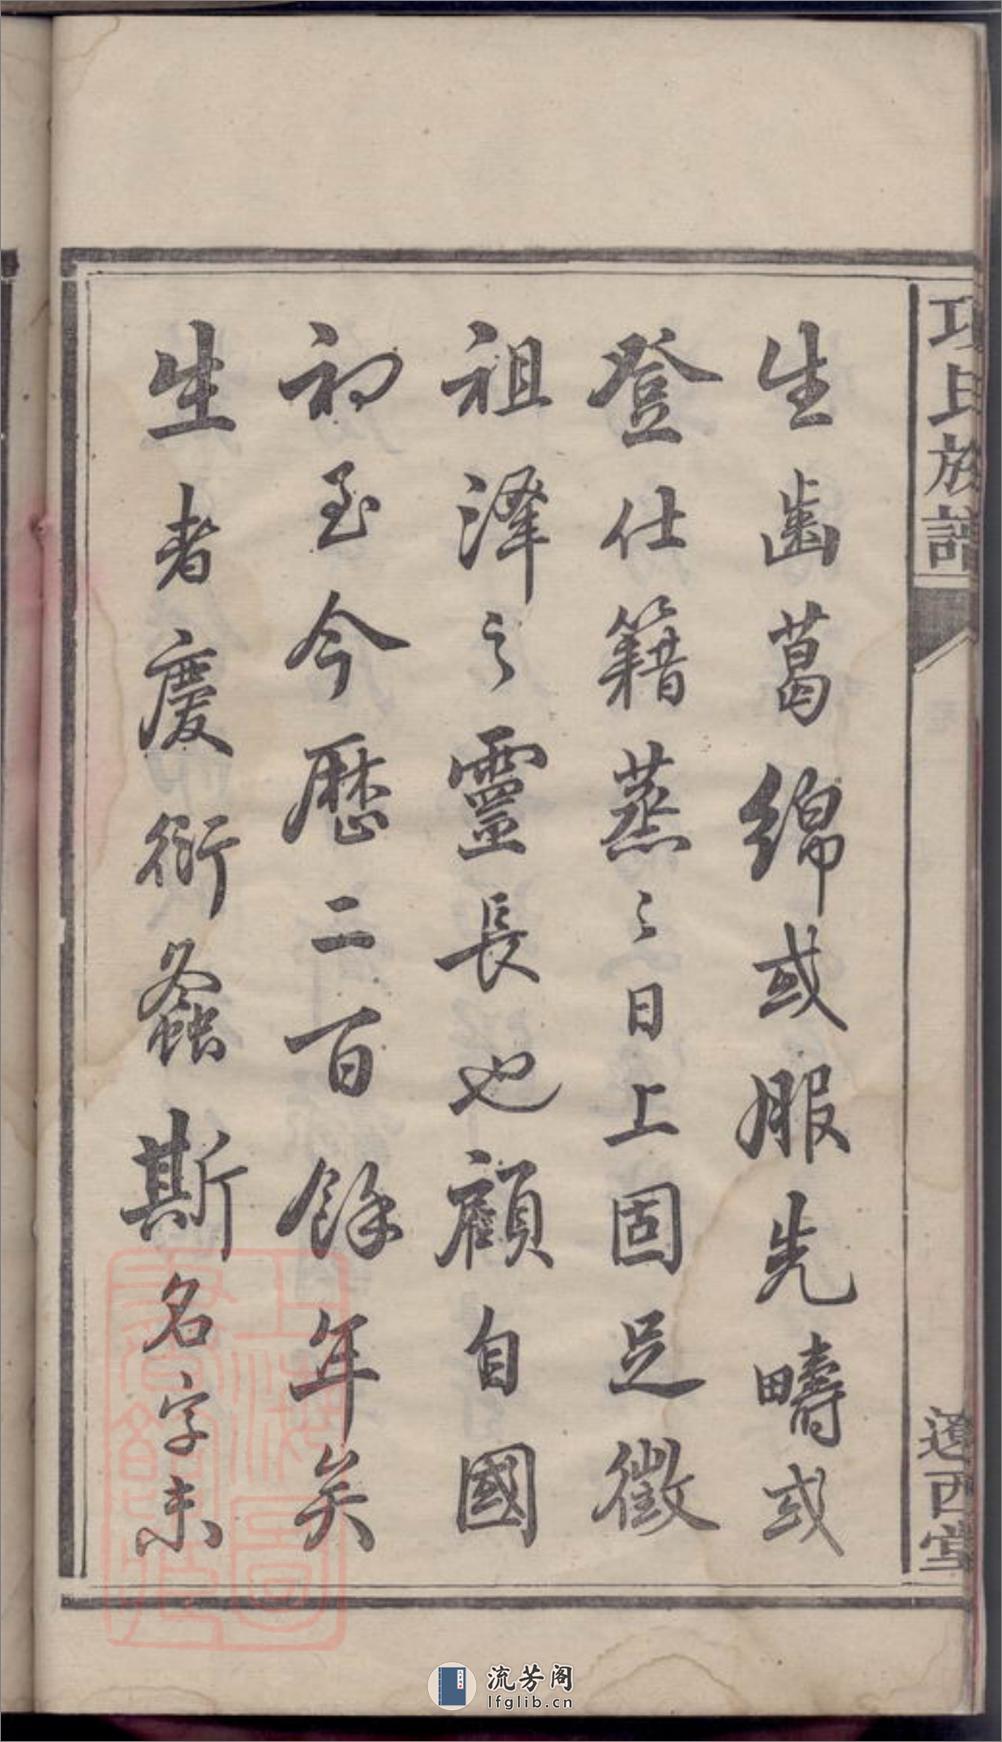 項氏族譜
遼西堂
生齒葛綿或服先疇或
登仕籍蒸々日上固足徵
祖澤之靈長也顧自國
初至今歷二百餘年矣
生者慶衍螽斯名字未
上海圖
書館藏
流芳阁
lfglib.cn